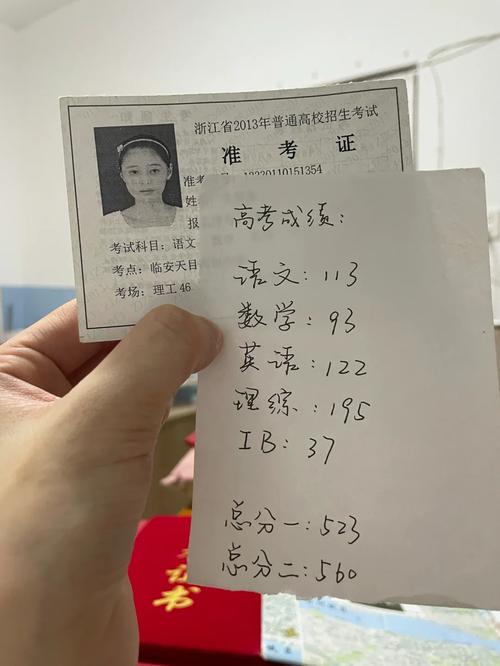 浙江省2013年普通高校招生考试
准 考 证
准考
姓
报
考试科目：语文
考点：临安天目
考场：理工46
高考成绩：
语文：113
数学：93
英语：122
理综：195
IB：37
总分一：523
总分二：560
书